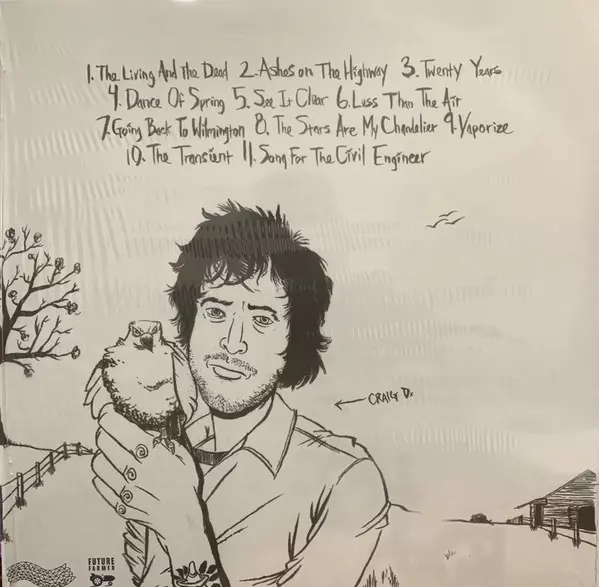 1. The Living And The Dead 2. Ashes on The Highway 3. Twenty Years
4. Dance Of Spring 5. See It Clear 6. Less Than The Air
7. Going Back To Wilmington 8. The Stars Are My Chandelier 9. Vaporize
10. The Transient 11. Song For The Civil Engineer
← CRAIG D.
FUTURE
FARMER